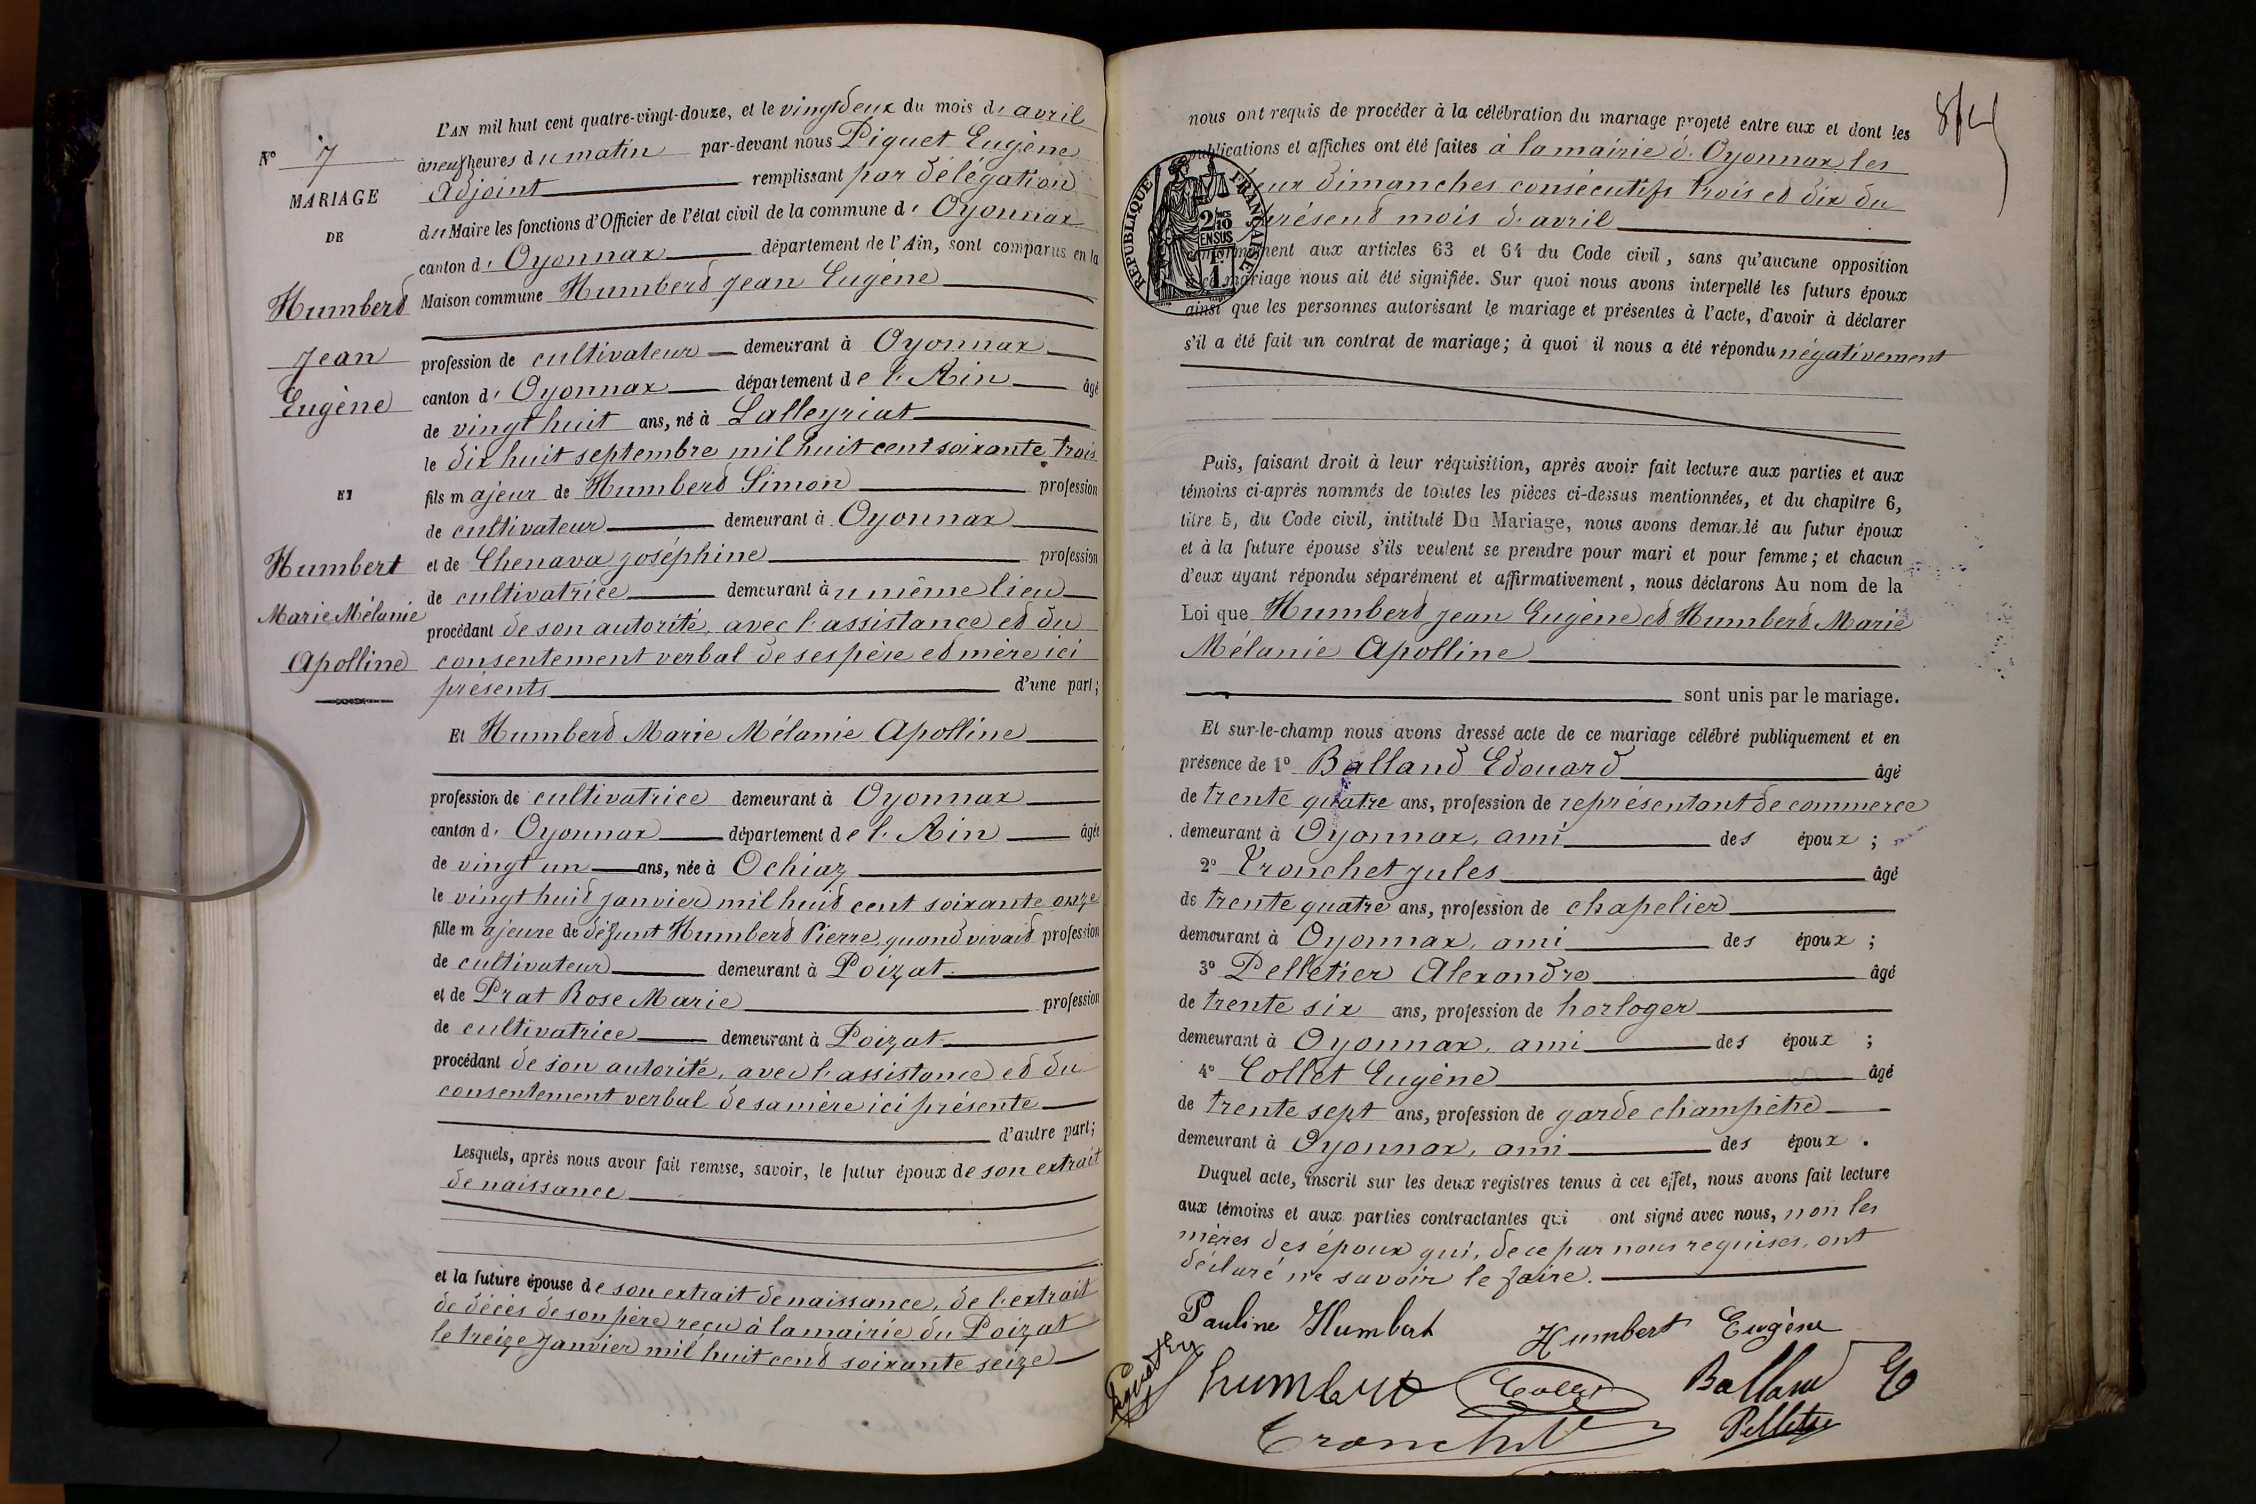 L'AN mil huit cent quatre-vingt-douze, et le vingt deux du mois d'avril
à neuf heures du matin par-devant nous Piquet Eugène
adjoint remplissant par délégation
du Maire les fonctions d'Officier de l'état civil de la commune d'Oyonnax
canton d'Oyonnax département de l'Ain, sont comparus en la
Maison commune Humbert Jean Eugène
profession de cultivateur demeurant à Oyonnax
canton d'Oyonnax département de l'Ain âgé
de vingt huit ans, né à Lalleyriat
le dix huit septembre mil huit cent soixante trois
fils majeur de Humbert Simon profession
de cultivateur demeurant à Oyonnax
et de Chenavax Joséphine profession
de cultivatrice demeurant au même lieu
procédant de son autorité, avec l'assistance et du
consentement verbal de ses père et mère ici
présents d'une part;
Et Humbert Marie Mélanie Apolline
profession de cultivatrice demeurant à Oyonnax
canton d'Oyonnax département de l'Ain âgée
de vingt un ans, née à Ochiaz
le vingt huit janvier mil huit cent soixante onze
fille majeure de défunt Humbert Pierre, quand vivait profession
de cultivateur demeurant à Poizat
et de Prat Rose Marie profession
de cultivatrice demeurant à Poizat
procédant de son autorité, avec l'assistance et du
consentement verbal de sa mère ici présente
d'autre part;
Lesquels, après nous avoir fait remise, savoir, le futur époux de son extrait
de naissance
et la future épouse de son extrait de naissance, de l'extrait
de décès de son père reçu à la mairie du Poizat
le treize janvier mil huit cent soixante seize
N° 7
MARIAGE
DE
Humbert
Jean
Eugène
ET
Humbert
Marie Mélanie
Apolline
nous ont requis de procéder à la célébration du mariage projeté entre eux et dont les
publications et affiches ont été faites à la mairie d'Oyonnax les
deux dimanches consécutifs trois et dix du
présent mois d'avril
conformément aux articles 63 et 64 du Code civil, sans qu'aucune opposition
à ce mariage nous ait été signifiée. Sur quoi nous avons interpellé les futurs époux
ainsi que les personnes autorisant le mariage et présentes à l'acte, d'avoir à déclarer
s'il a été fait un contrat de mariage; à quoi il nous a été répondu négativement
RÉPUBLIQUE FRANÇAISE
2/10 EN SUS
1F
Puis, faisant droit à leur réquisition, après avoir fait lecture aux parties et aux
témoins ci-après nommés de toutes les pièces ci-dessus mentionnées, et du chapitre 6,
titre 5, du Code civil, intitulé Du Mariage, nous avons demandé au futur époux
et à la future épouse s'ils veulent se prendre pour mari et pour femme; et chacun
d'eux ayant répondu séparément et affirmativement, nous déclarons Au nom de la
Loi que Humbert Jean Eugène et Humbert Marie
Mélanie Apolline
sont unis par le mariage.
Et sur-le-champ nous avons dressé acte de ce mariage célébré publiquement et en
présence de 1° Balland Edouard âgé
de trente quatre ans, profession de représentant de commerce
demeurant à Oyonnax, ami des époux;
2° Tronchet Jules âgé
de trente quatre ans, profession de chapelier
demeurant à Oyonnax, ami des époux;
3° Pelletier Alexandre âgé
de trente six ans, profession de horloger
demeurant à Oyonnax, ami des époux;
4° Collet Eugène âgé
de trente sept ans, profession de garde champêtre
demeurant à Oyonnax, ami des époux.
Duquel acte, inscrit sur les deux registres tenus à cet effet, nous avons fait lecture
aux témoins et aux parties contractantes qui ont signé avec nous, non les
mères des époux qui, de ce par nous requises, ont
déclaré ne savoir le faire.
Pauline Humbert Humbert Eugène
humbert Collet Balland E
Tronchet Pelletier